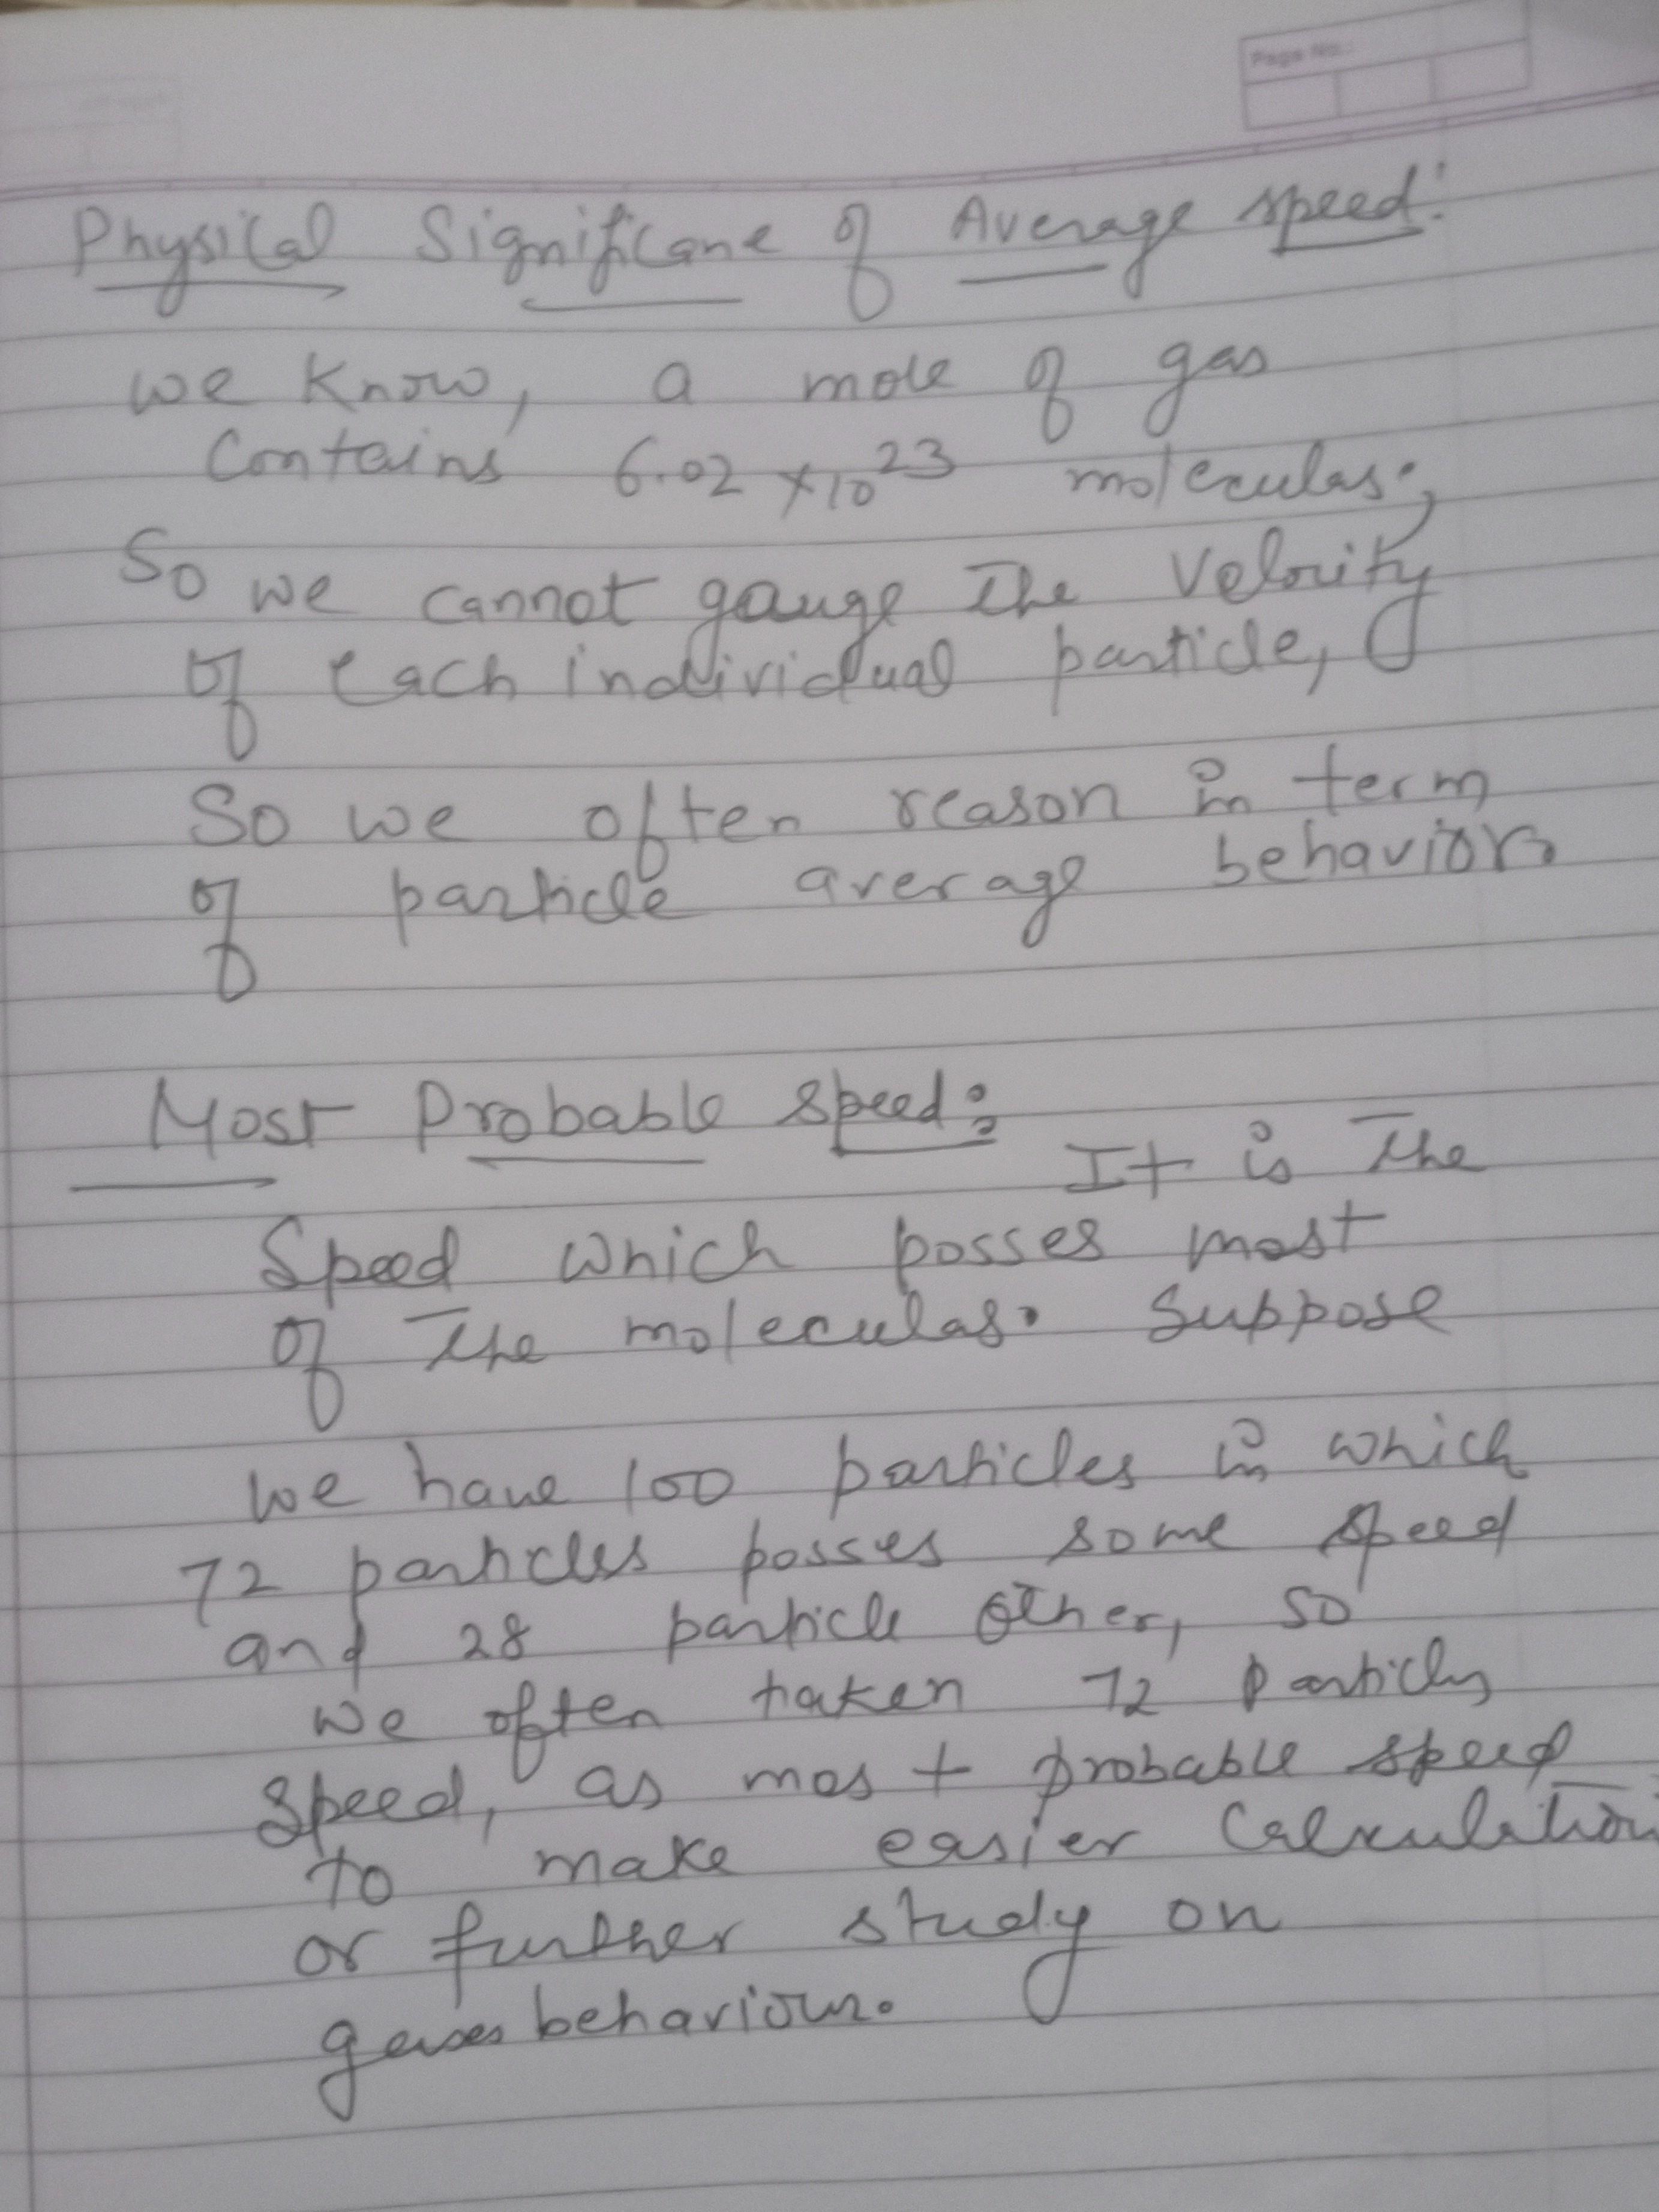 Page No.:
Physical Significane of Average speed:
we know, a mole of gas
contains 6.02 × 10^23 moleculas.,
So we cannot gauge the velocity
of each individual particle,
So we often reason in term
of particle average behavior.
Most Probable speed: It is the
Speed which posses most
of the moleculas. Suppose
we have 100 particles in which
72 particles posses some speed
and 28 particle other, so
we often taken 72 particles
speed, as most probable speed
to make easier calculation
or further study on
gases behaviour.